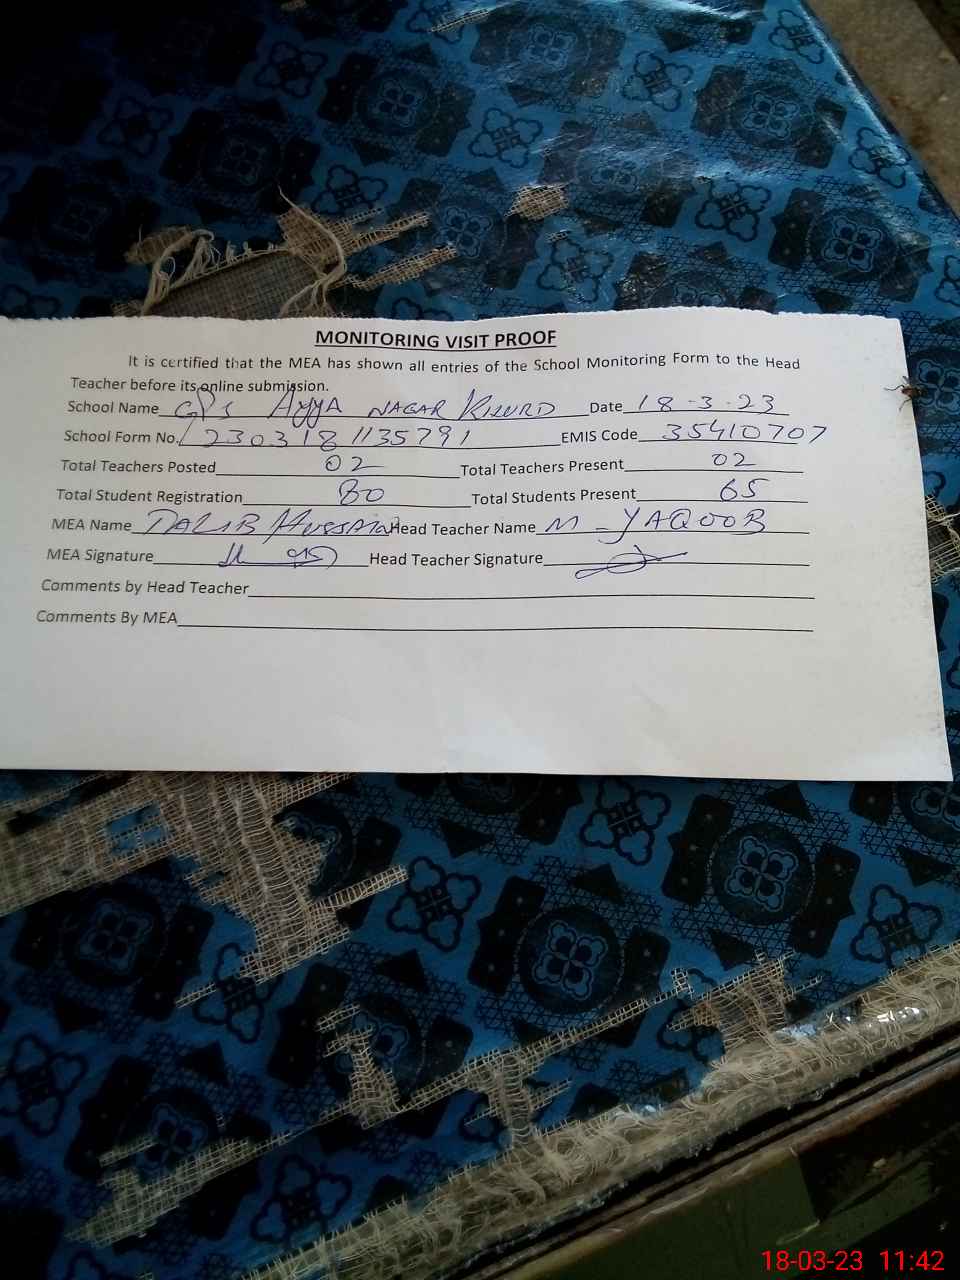 MONITORING VISIT PROOF
It is certified that the MEA has shown all entries of the School Monitoring Form to the Head
Teacher before its online submission.
School Name GPS AYYA NAGAR KHURD Date 18-3-23
School Form No. 2303181135791 EMIS Code 35410707
Total Teachers Posted 02 Total Teachers Present 02
Total Student Registration 80 Total Students Present 65
MEA Name TALIB HUSSAIN Head Teacher Name M - YAQOOB
MEA Signature Head Teacher Signature
Comments by Head Teacher
Comments By MEA
18-03-23 11:42